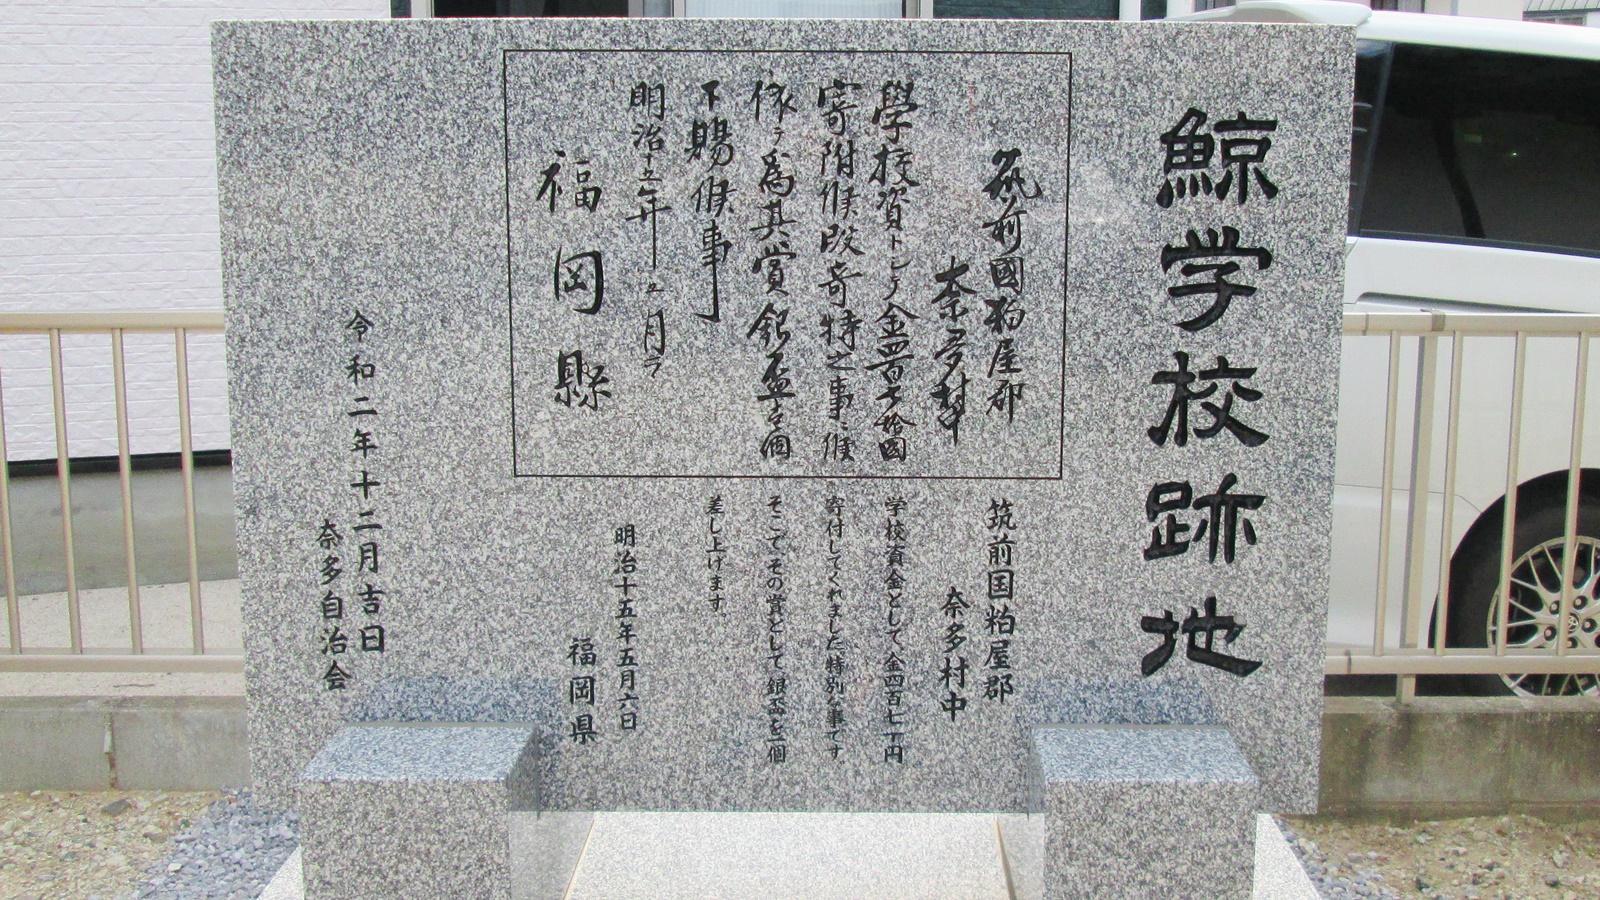 鯨学校跡地
筑前國粕屋郡
奈多村中
學校資トシテ金四百七拾圓
寄附候段奇特之事ニ候
依テ為其賞銀盃壱個
下賜候事
明治十五年五月
福岡縣
筑前国粕屋郡
奈多村中
学校資金として、金四百七十円
寄付してくれました、特別な事です
そこでその賞として銀盃を一個
差し上げます。
明治十五年五月六日
福岡県
令和二年十二月吉日
奈多自治会